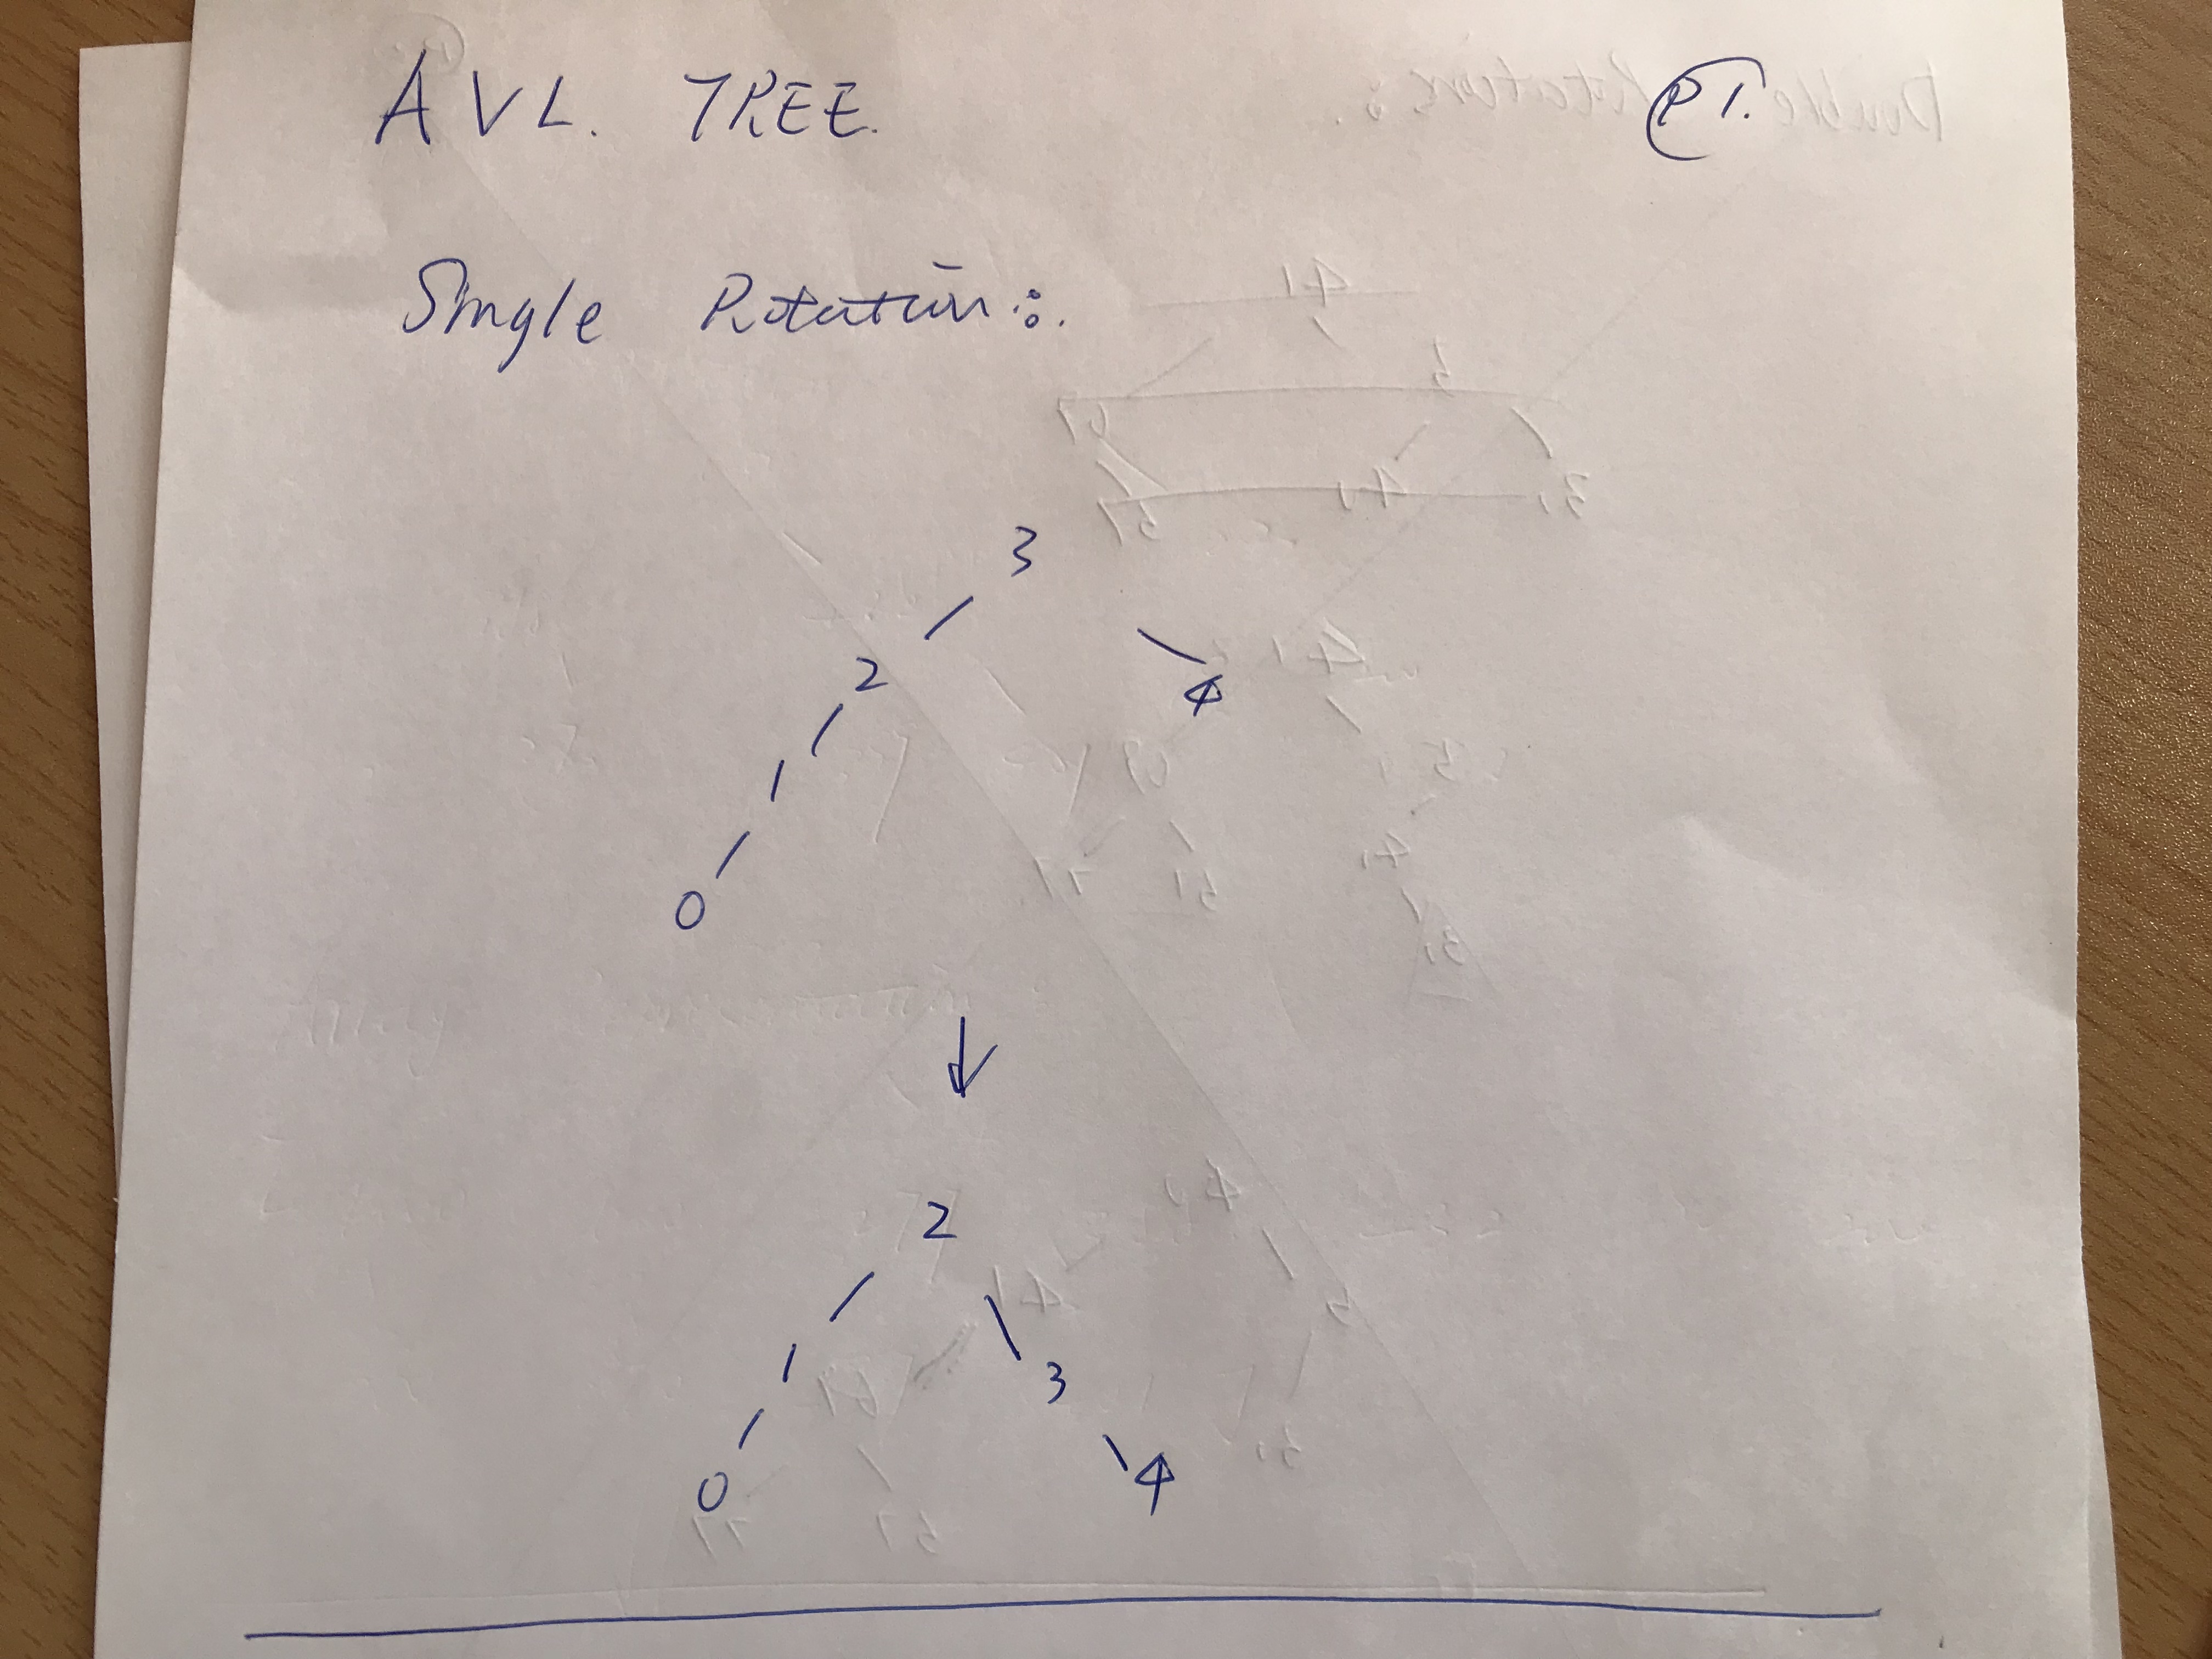 AVL. TREE. P1.
Single Rotation:.
3
2 4
1
0
2
1 3
0 4